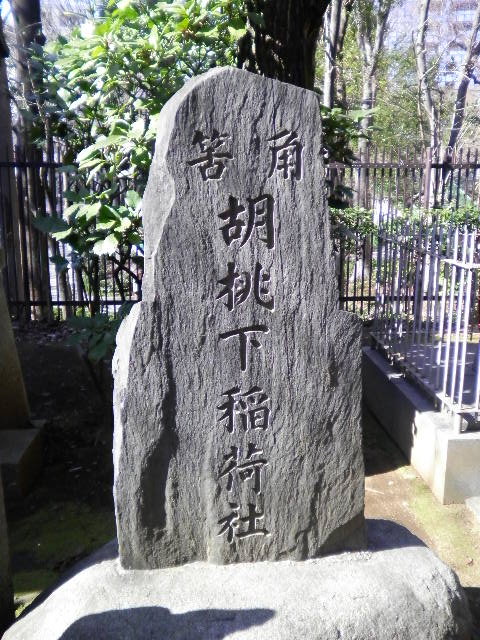 角筈
胡桃下稲荷社